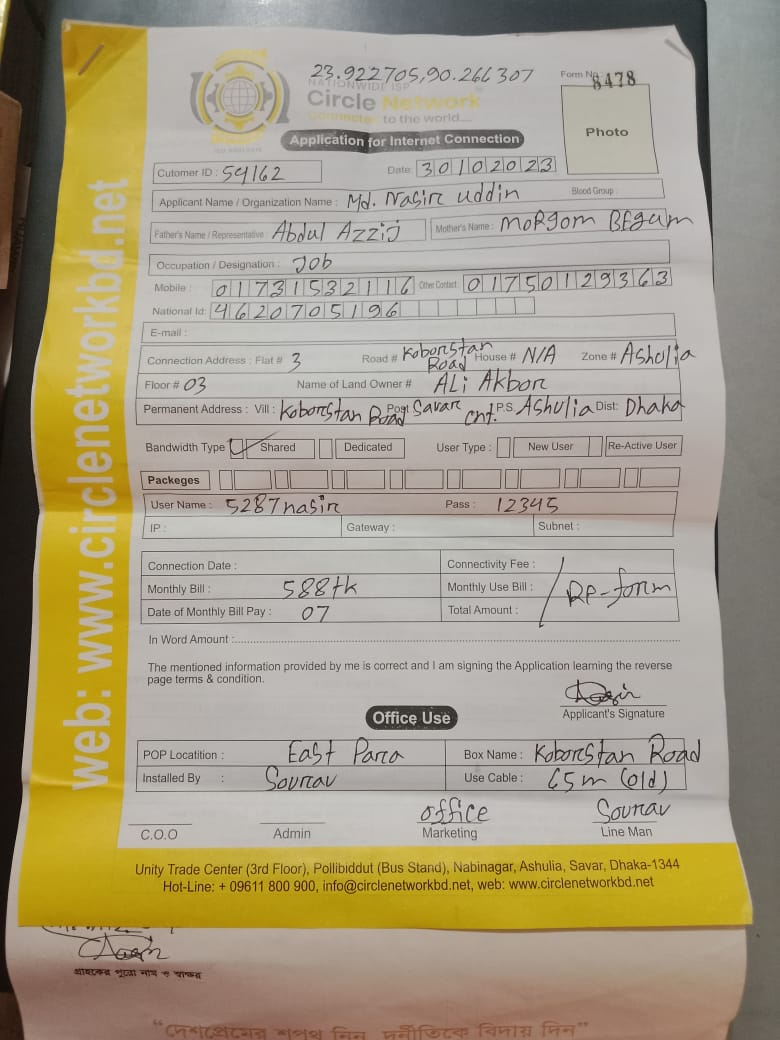 23.922705,90.266307
Form No 8478
NATIONWIDE ISP
Circle Network
Connected to the world....
Photo
Application for Internet Connection
Cutomer ID : 54162 Date: 30102023
Applicant Name / Organization Name : Md. Nasir uddin Blood Group :
Father's Name / Representative : Abdul Azzij Mother's Name : MoRgom BEgum
Occupation / Designation : Job
Mobile : 01731532116 Other Contact : 01750129363
National Id: 4620705196
E-mail :
Connection Address : Flat # 3 Road # Koborstan Road House # N/A Zone # Ashulia
Floor # 03 Name of Land Owner # ALi Akbor
Permanent Address : Vill : Koborstan Road Post Savar Cnt. P.S. Ashulia Dist: Dhaka
Bandwidth Type Shared Dedicated User Type : New User Re-Active User
Packeges
User Name : 5287nasir Pass : 12345
IP : Gateway : Subnet :
Connection Date : Connectivity Fee :
Monthly Bill : 588tk Monthly Use Bill : Re-form
Date of Monthly Bill Pay : 07 Total Amount :
In Word Amount :
The mentioned information provided by me is correct and I am signing the Application learning the reverse
page terms & condition.
Applicant's Signature
Office Use
POP Locatition : East Para Box Name : Koborstan Road
Installed By : Sourav Use Cable : 65m (old)
office Sourav
C.O.O Admin Marketing Line Man
Unity Trade Center (3rd Floor), Pollibiddut (Bus Stand), Nabinagar, Ashulia, Savar, Dhaka-1344
Hot-Line: + 09611 800 900, info@circlenetworkbd.net, web: www.circlenetworkbd.net
web: www.circlenetworkbd.net
গ্রাহকের পুরো নাম ও স্বাক্ষর
"দেশপ্রেমের শপথ নিন, দুর্নীতিকে বিদায় দিন"